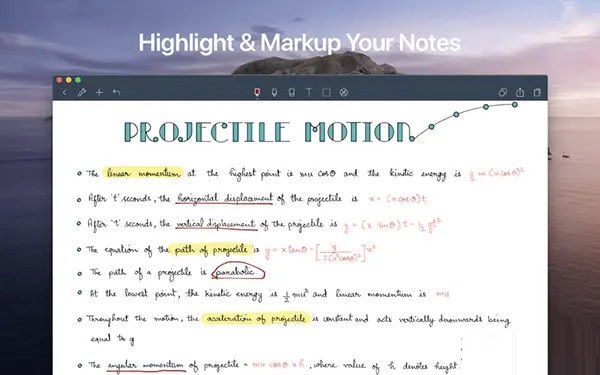 Highlight & Markup Your Notes
PROJECTILE MOTION
The linear momentum at the highest point is mu cosθ and the kinetic energy is ½ m (u cosθ)²
After 't' seconds, the horizontal displacement of the projectile is x = (u cosθ)t
After 't' seconds, the vertical displacement of the projectile is y = (u sinθ) t - ½ gt²
The equation of the path of projectile is y = x tanθ - [g / 2(u² cosθ)²] x²
The path of a projectile is parabolic
At the lowest point, the kinetic energy is ½ mu² and linear momentum is mu
Throughout the motion, the acceleration of projectile is constant and acts vertically downwards being
equal to g
The angular momentum of projectile = mu cosθ × h, where value of h denotes height.